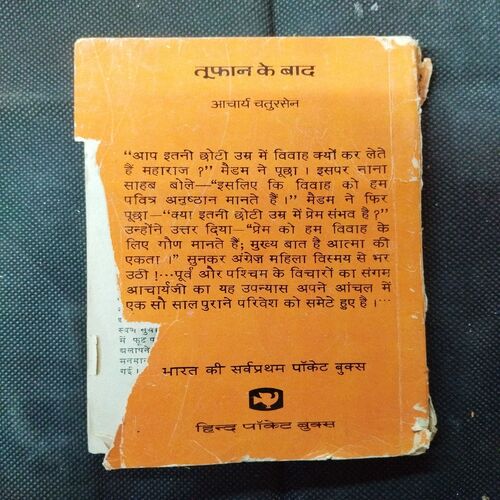 तूफान के बाद
आचार्य चतुरसेन
“आप इतनी छोटी उम्र में विवाह क्यों कर लेते
हैं महाराज ?” मैडम ने पूछा । इसपर नाना
साहब बोले—“इसलिए कि विवाह को हम
पवित्र अनुष्ठान मानते हैं ।” मैडम ने फिर
पूछा—“क्या इतनी छोटी उम्र में प्रेम संभव है ?”
उन्होंने उत्तर दिया—“प्रेम को हम विवाह के
लिए गौण मानते हैं; मुख्य बात है आत्मा की
एकता ।” सुनकर अंग्रेज़ महिला विस्मय से भर
उठी !...पूर्व और पश्चिम के विचारों का संगम
आचार्यजी का यह उपन्यास अपने आंचल में
एक सौ साल पुराने परिवेश को समेटे हुए है ।...
में फूट प
चलापने
मनमान
गई ।
भारत की सर्वप्रथम पॉकेट बुक्स
हिन्द पॉकेट बुक्स